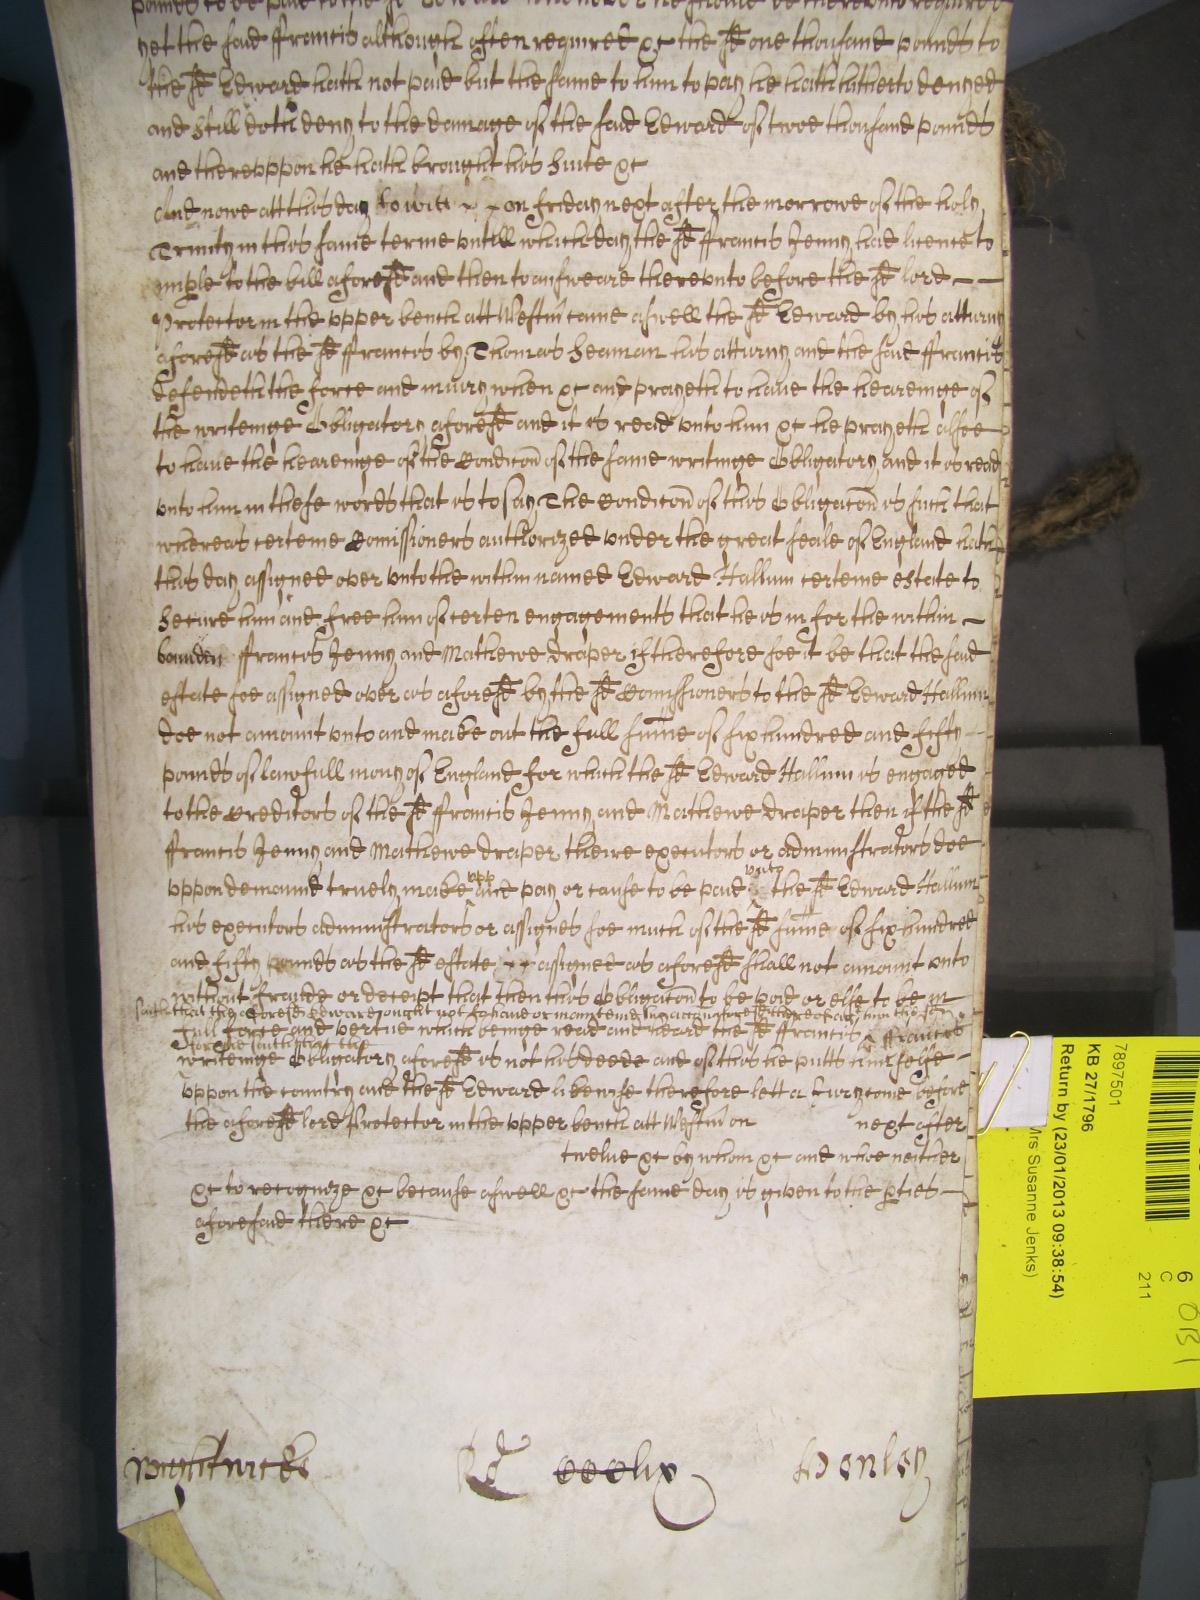 pounds to be paid to the sd Edward when ever he should be thereunto required
yet the said ffrancis although often required &c the sd one thousand pounds to
the sd Edward hath not paid but the same to him to pay he hath hitherto denyed
and still doth deny to the damage of the said Edward of twoe thousand pounds
and thereuppon he hath brought his suite &c
And nowe att this day to witt on friday next after the morrowe of the holy
Trinity in this same terme untill which day the sd ffrancis Jenny had licence to
imple to the bill aforesd and then to answeare thereunto before the sd lord
Protector in the upper bench att Westm̄ came aswell the sd Edward by his atturny
aforesd as the sd ffrancis by Thomas Seaman his atturny and the said ffrancis
defendeth the force and iniury when &c and prayeth to have the hearenige of
the writeinge Obligatory aforesd and it is read unto him &c he prayeth alsoe
to have the hearenige of the Condicōn of the same writinge Obligatory and it is read
unto him in these words that is to say The Condicōn of this Obligatōn is such that
whereas certeine Comissioners authorized under the great seale of England hath
this day assigned over unto the within named Edward Hallum certeine estate to
secure him and free him of certen engagements that he is in for the within
bounden ffrancis Jenny and Mathewe Draper if therefore soe it be that the said
estate soe assigned over as aforesd by the sd Comissioners to the sd Edward Hallum
doe not amount unto and make out the full sum̄e of six hundred and fifty
pounds of lawfull mony of England for which the sd Edward Hallum is engaged
to the Creditors of the sd ffrancis Jenny and Mathewe Draper then if the sd
ffrancis Jenny and Mathewe Draper theire executors or administrators doe
uppon demaund truely make upp and pay or cause to be paid unto the sd Edward Hallum
his executors administrators or assignes soe much of the sd sum̄e of six hundred
and fifty pounds as the sd estate assigned as aforesd shall not amount unto
without fraude or deceipt that then this Obligatōn to be void or else to be in
saith that the aforesd Edward ought not to have or mainteine his action aforesd thereof against him
full force and vertue which beinge read and heard the sd ffrancis
writeinge Obligatory aforesd is not his deede and of this he putts himselfe
uppon the country and the sd Edward likewise therefore lett a Jury come before
the aforesd lord Protector in the upper bench att Westm̄ on next after
twelve &c by whom &c and whoe neither
&c to recognize &c because aswell &c the same day is given to the pties
aforesaid there &c
Wightwicke Rd ccclix Henley
7897501
KB 27/1796
Return by (23/01/2013 09:38:54)
Mrs Susanne Jenks)
6
C
211